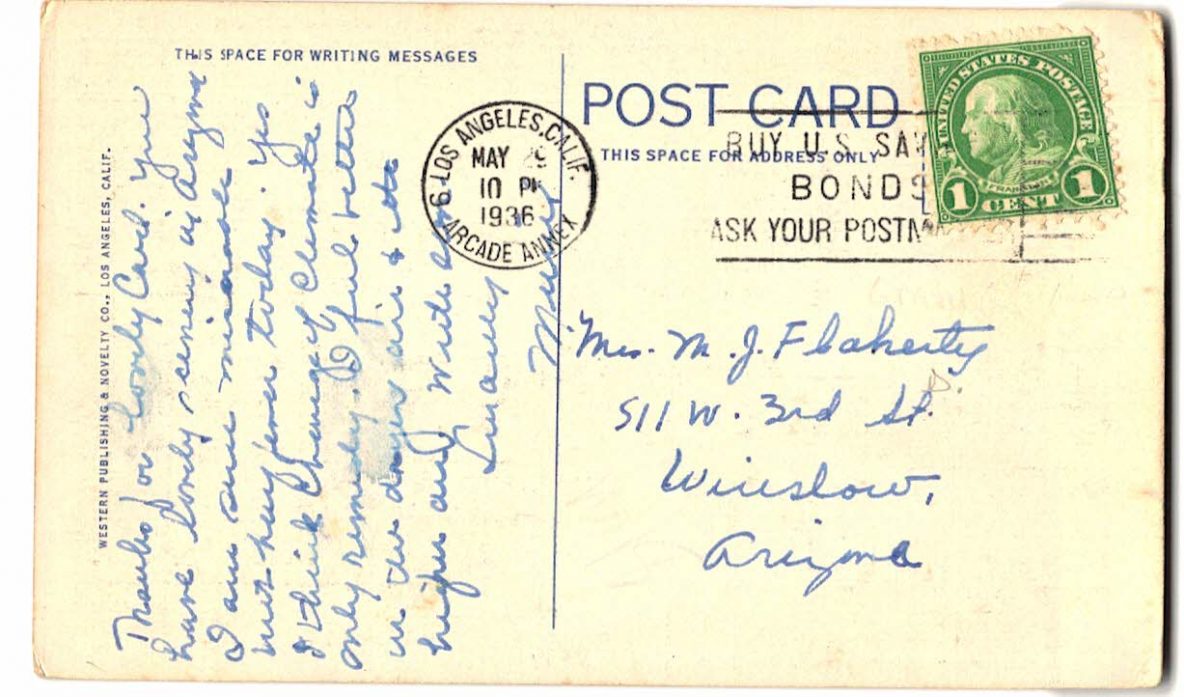 THIS SPACE FOR WRITING MESSAGES
WESTERN PUBLISHING & NOVELTY CO., LOS ANGELES, CALIF.
Thanks for lovely Card. You
have lovely scenery in Arizona
I am miserable
hay fever today. Yes
I think Change of Climate is
only remedy. I feel better
in air & its
higher Write soon
Sincerely
LOS ANGELES, CALIF.
MAY
10 PM
1936
ARCADE ANNEX
6
POST CARD
THIS SPACE FOR ADDRESS ONLY
BUY U.S. SAV
BONDS
ASK YOUR POSTM
UNITED STATES POSTAGE
FRANKLIN
1 CENT 1
Mrs. M. J. Flaherty
511 W. 3rd St.
Winslow,
Arizona